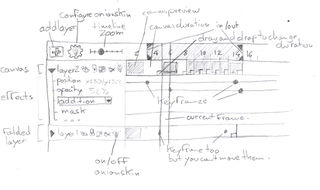 configure onionskin
canvas preview
add layer
timeline zoom
canvas duration in/out
drag and drop to change duration
2 4 6 8 10 12 14 16
canvas
layer2
position
opacity
addition
mask
effects
keyframes
current frame
folded layer
layer1
on/off onionskin
keyframe top but you can't move them.